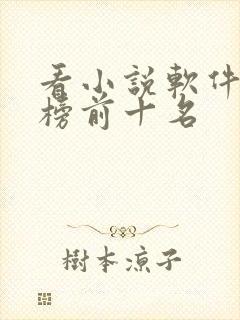 看小說軟件
榜前十名
樹本涼子